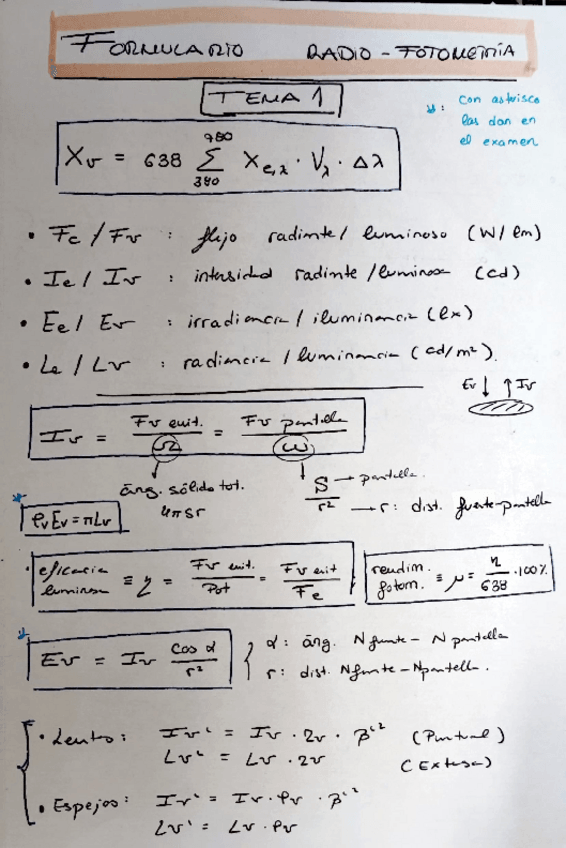 FORMULARIO RADIO-FOTOMETRÍA
TEMA 1
*: Con asterisco
las dan en
el examen
Xv = 638 Σ Xe,λ · Vλ · Δλ
780
380
• Fe / Fv : flujo radiante / luminoso (W/lm)
• Ie / Iv : intensidad radiante / luminosa (cd)
• Ee / Ev : irradiancia / iluminancia (lx)
• Le / Lv : radiancia / luminancia (cd/m²).
Ev ↓ ↑ Iv
Iv = Fv emit. / Ω = Fv pantalla / ω
áng. sólido tot.
4π sr
S → pantalla
r² → r: dist. fuente-pantalla
*
ρv Ev = π Lv
· eficacia luminosa ≡ η = Fv emit. / Pot = Fv emit / Fe
rendim. fotom. ≡ μ = η / 638 · 100%
*
Ev = Iv cos α / r²
α: áng. N fuente - N pantalla
r: dist. N fuente - N pantalla.
• Lentes: Iv' = Iv · τv · β'² (Puntual)
Lv' = Lv · τv (Extensa)
• Espejos: Iv' = Iv · ρv · β'²
Lv' = Lv · ρv